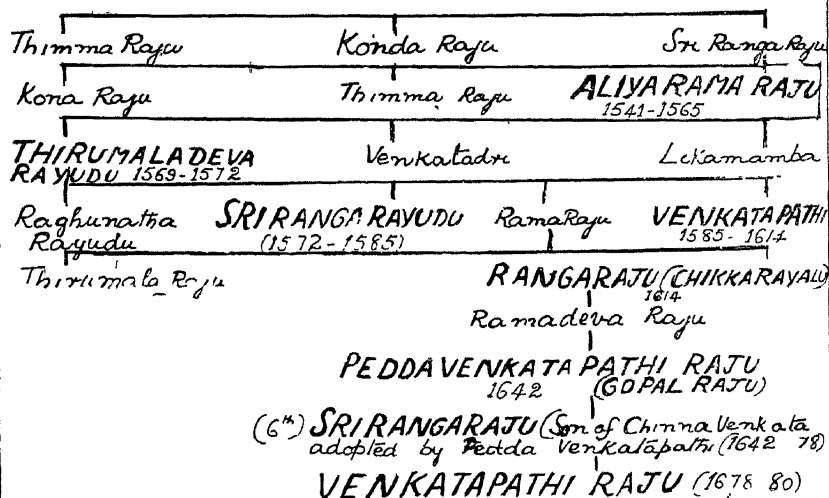 Thimma Raju Konda Raju Sri Ranga Raju
Kona Raju Thimma Raju ALIYA RAMA RAJU
1541-1565
THIRUMALADEVA Venkatadri Lakamamba
RAYUDU 1569-1572
Raghunatha SRI RANGA RAYUDU Rama Raju VENKATAPATHI
Rayudu (1572-1585) 1585-1614
Thirumala Raju RANGARAJU (CHIKKARAYALU)
1614
Ramadeva Raju
PEDDAVENKATAPATHI RAJU
1642 (GOPAL RAJU)
(6th) SRIRANGARAJU (Son of Chinna Venkata
adopted by Pedda Venkatapathi (1642 78)
VENKATAPATHI RAJU (1678 80)